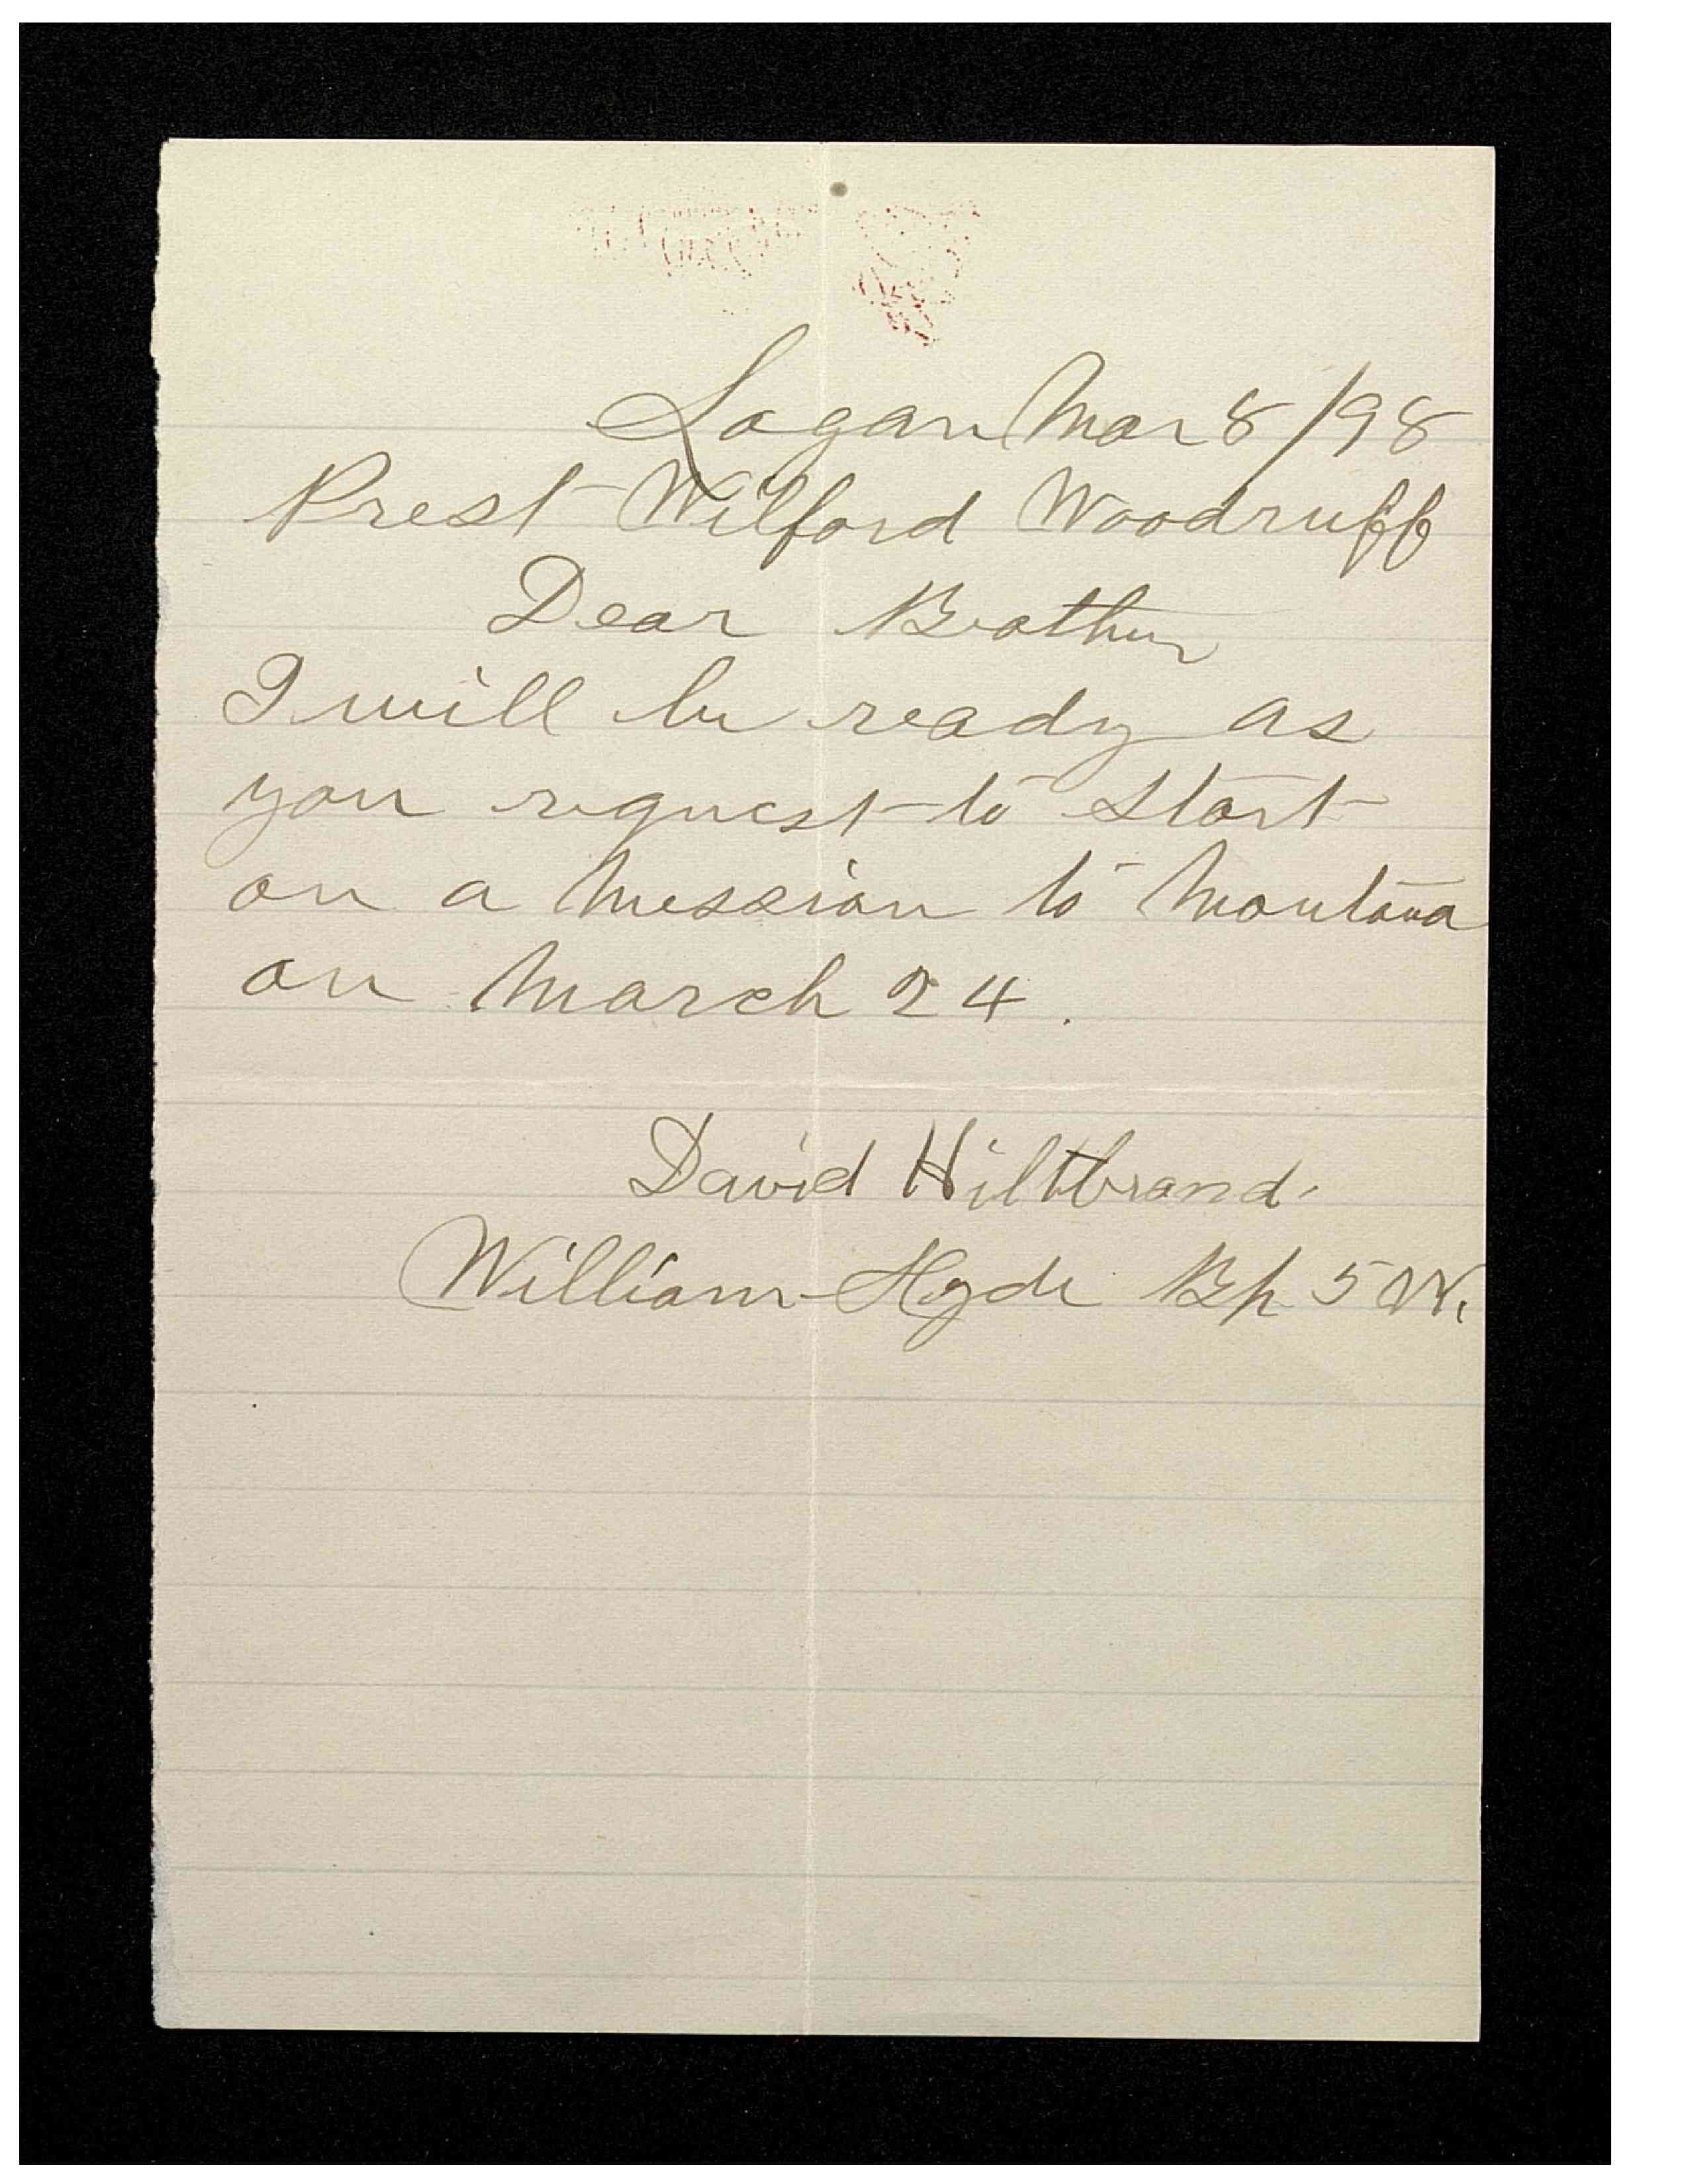 Logan Mar 8/98
Prest Wilford Woodruff
Dear Brother
I will be ready as
you request to start
on a mission to Montana
on March 24.
David Hiltbrand.
William Hyde Bp 5 W.